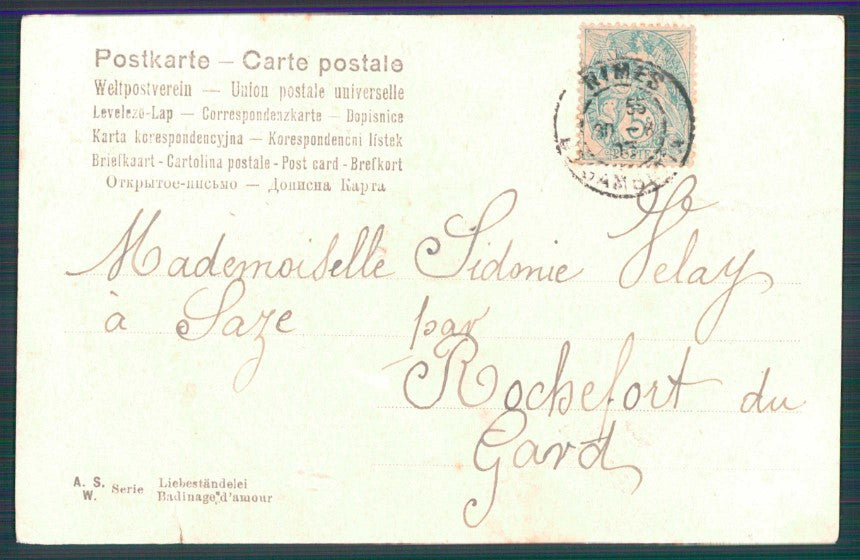 Postkarte — Carte postale
Weltpostverein — Union postale universelle
Levelezo-Lap — Correspondenzkarte — Dopisnice
Karta korespondencyjna — Korespondencni lístek
Briefkaart - Cartolina postale - Post card - Brefkort
Открытое-письмо — Дописна Карта
NIMES
5c
Mademoiselle Sidonie Velay
à Saze par
Rochefort du
Gard
A. S. W. Serie Liebeständelei
Badinage d'amour